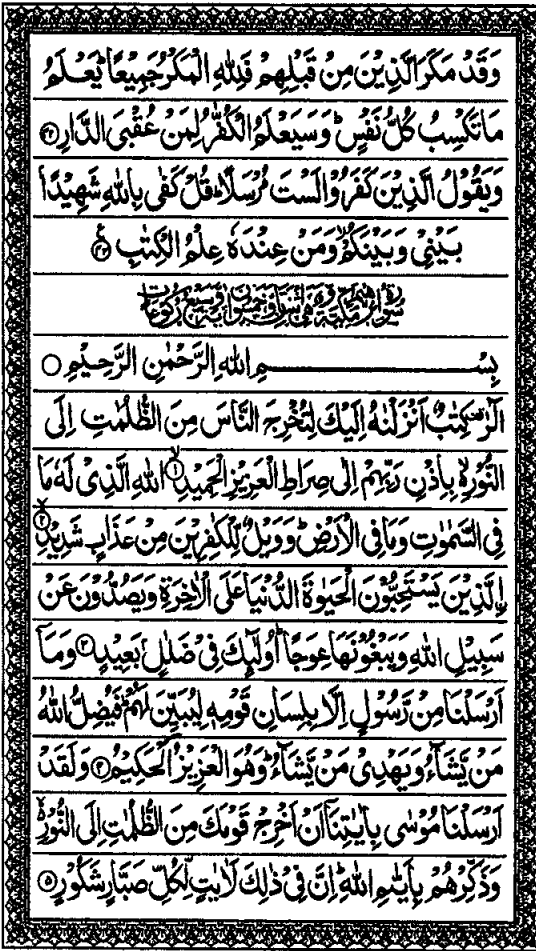 وَقَدْ مَكَرَ الَّذِيْنَ مِنْ قَبْلِهِمْ فَلِلّٰهِ الْمَكْرُ جَمِيْعًا ؕ يَعْلَمُ
مَا تَكْسِبُ كُلُّ نَفْسٍ ؕ وَسَيَعْلَمُ الْكُفّٰرُ لِمَنْ عُقْبَى الدَّارِ ﴿۴۲﴾
وَيَقُوْلُ الَّذِيْنَ كَفَرُوْا لَسْتَ مُرْسَلًا ؕ قُلْ كَفٰى بِاللّٰهِ شَهِيْدًۢا
بَيْنِيْ وَبَيْنَكُمْ ۙ وَمَنْ عِنْدَهٗ عِلْمُ الْكِتٰبِ ﴿۴۳﴾
بِسْمِ اللّٰهِ الرَّحْمٰنِ الرَّحِيْمِ ○
الٓرٰ ۟ كِتٰبٌ اَنْزَلْنٰهُ اِلَيْكَ لِتُخْرِجَ النَّاسَ مِنَ الظُّلُمٰتِ اِلَى
النُّوْرِ ۙ۬ بِاِذْنِ رَبِّهِمْ اِلٰى صِرَاطِ الْعَزِيْزِ الْحَمِيْدِ ۙ﴿۱﴾ اللّٰهِ الَّذِيْ لَهٗ مَا
فِي السَّمٰوٰتِ وَمَا فِي الْاَرْضِ ؕ وَوَيْلٌ لِّلْكٰفِرِيْنَ مِنْ عَذَابٍ شَدِيْدِ ۙ﴿۲﴾
ۣالَّذِيْنَ يَسْتَحِبُّوْنَ الْحَيٰوةَ الدُّنْيَا عَلَى الْاٰخِرَةِ وَيَصُدُّوْنَ عَنْ
سَبِيْلِ اللّٰهِ وَيَبْغُوْنَهَا عِوَجًا ؕ اُولٰٓئِكَ فِيْ ضَلٰلٍۭ بَعِيْدٍ ﴿۳﴾ وَمَاۤ
اَرْسَلْنَا مِنْ رَّسُوْلٍ اِلَّا بِلِسَانِ قَوْمِهٖ لِيُبَيِّنَ لَهُمْ ؕ فَيُضِلُّ اللّٰهُ
مَنْ يَّشَآءُ وَيَهْدِيْ مَنْ يَّشَآءُ ؕ وَهُوَ الْعَزِيْزُ الْحَكِيْمُ ﴿۴﴾ وَلَقَدْ
اَرْسَلْنَا مُوْسٰى بِاٰيٰتِنَاۤ اَنْ اَخْرِجْ قَوْمَكَ مِنَ الظُّلُمٰتِ اِلَى النُّوْرِ ۙ۬
وَذَكِّرْهُمْ بِاَيّٰىمِ اللّٰهِ ؕ اِنَّ فِيْ ذٰلِكَ لَاٰيٰتٍ لِّكُلِّ صَبَّارٍ شَكُوْرٍ ﴿۵﴾